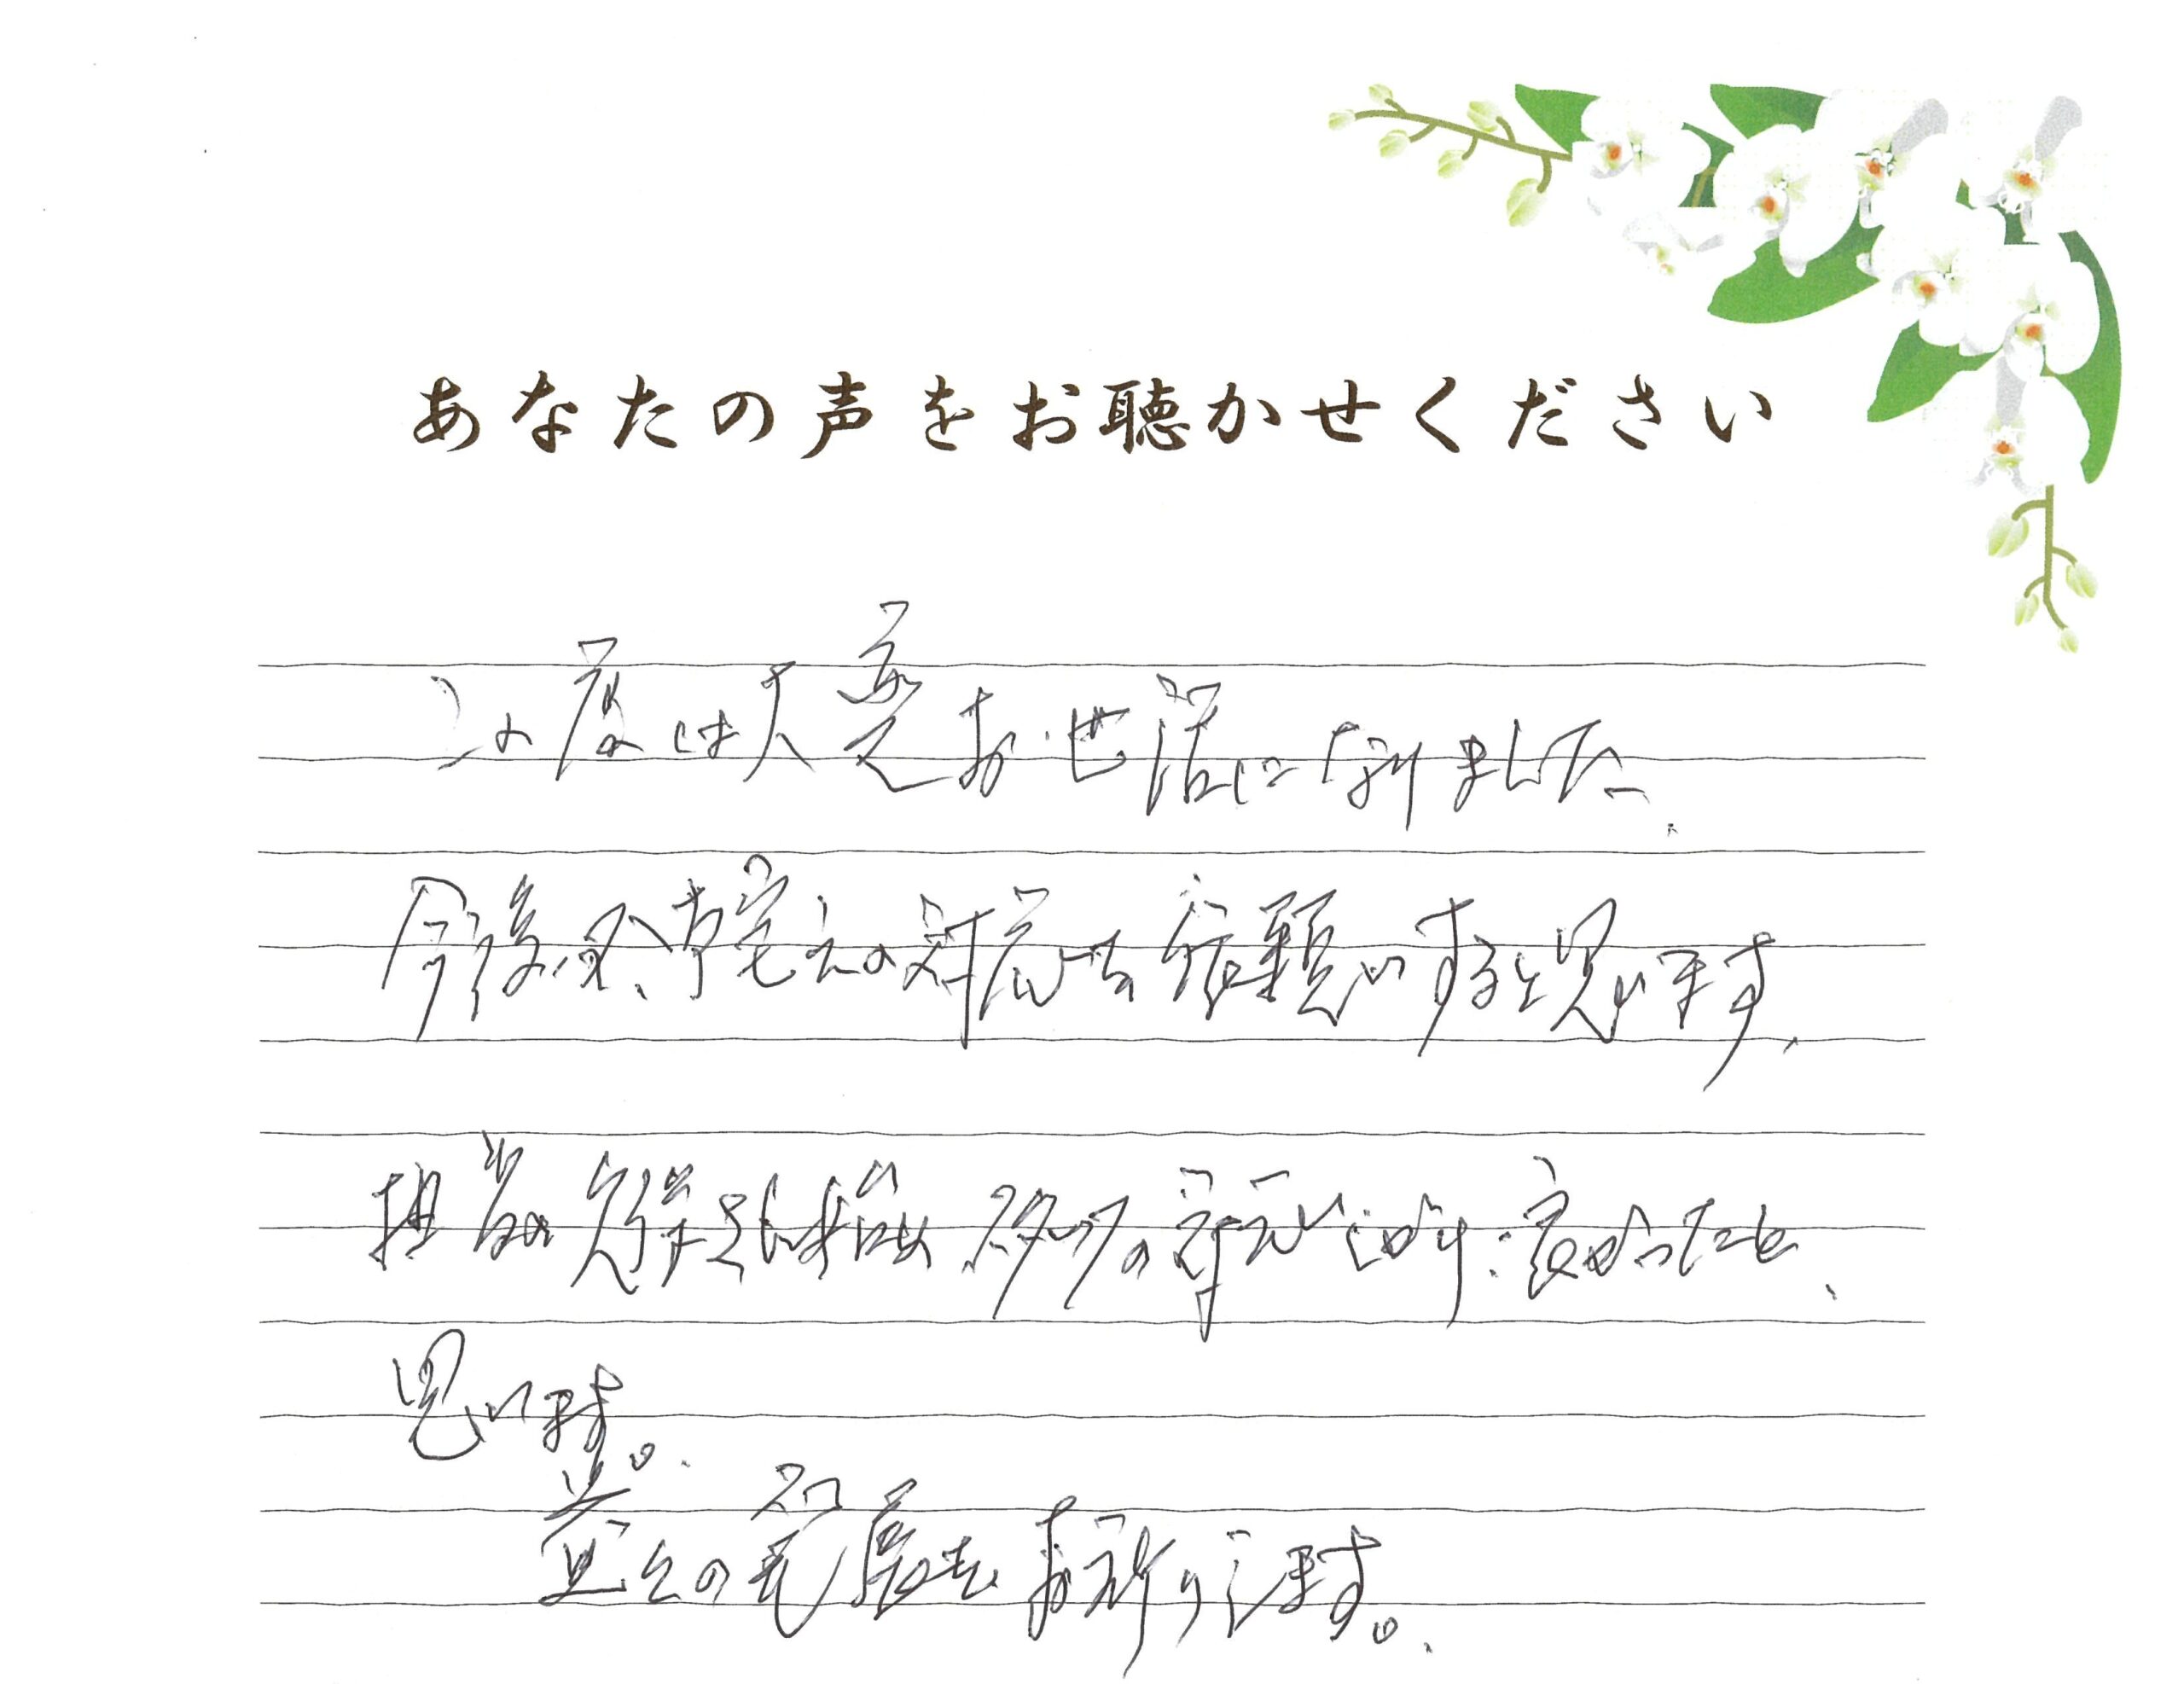 あなたの声をお聴かせください
この度は大変お世話になりました。
今後の、お宅との対応も依頼いすると思います、
担当の 様 スタッフの 良かったと、
思います。
益々の発展をお祈りします。